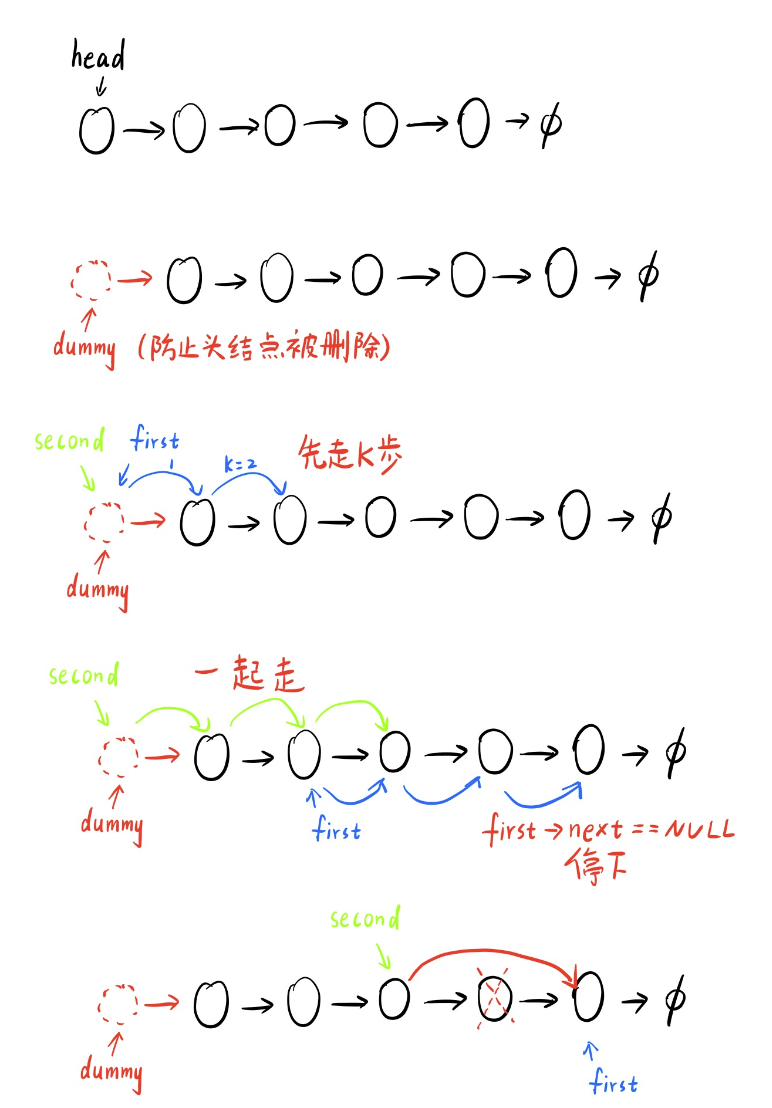 head
ϕ
ϕ
dummy (防止头结点被删除)
second first
1 k=2 先走K步
ϕ
dummy
second 一起走
ϕ
dummy first first→next==NULL
停下
second
ϕ
dummy first